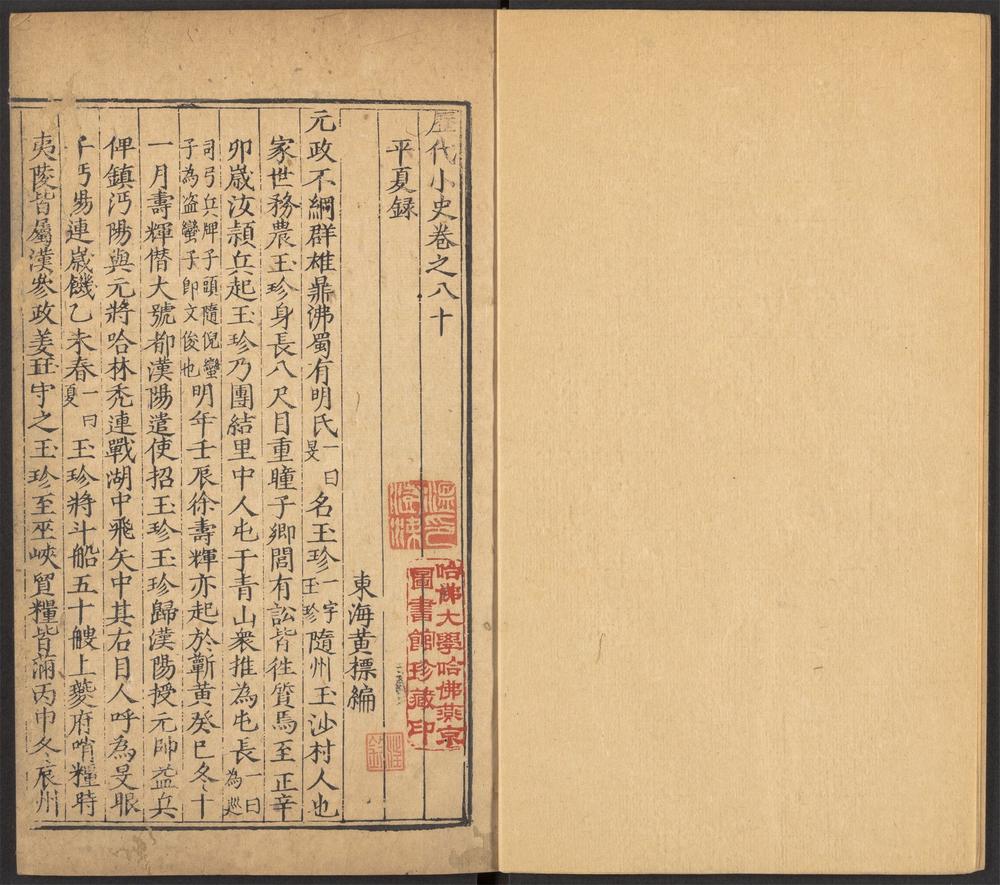 歷代小史卷之八十
平夏録
東海黃標編
元政不綱群雄鼎沸蜀有明氏一曰旻名玉珍一字玉珍隨州玉沙村人也
家世務農玉珍身長八尺目重瞳子鄉閭有訟皆往質焉至正辛
卯嵗汝潁兵起玉珍乃團結里中人屯于青山衆推為屯長一曰為廵
司弓兵牌子頭隨倪蠻子為盗蠻子即文俊也明年壬辰徐壽輝亦起於蘄黃癸巳冬十
一月壽輝僣大號都漢陽遣使招玉珍玉珍歸漢陽授元帥益兵
俾鎮沔陽與元將哈林禿連戰湖中飛矢中其右目人呼為旻眼
子沔陽連嵗饑乙未春一曰夏玉珍將斗船五十艘上夔府哨糧時
夷陵皆屬漢叅政姜珏守之玉珍至巫峽貿糧皆滿丙申冬哀州
哈佛大學哈佛燕京
圖書館珍藏印